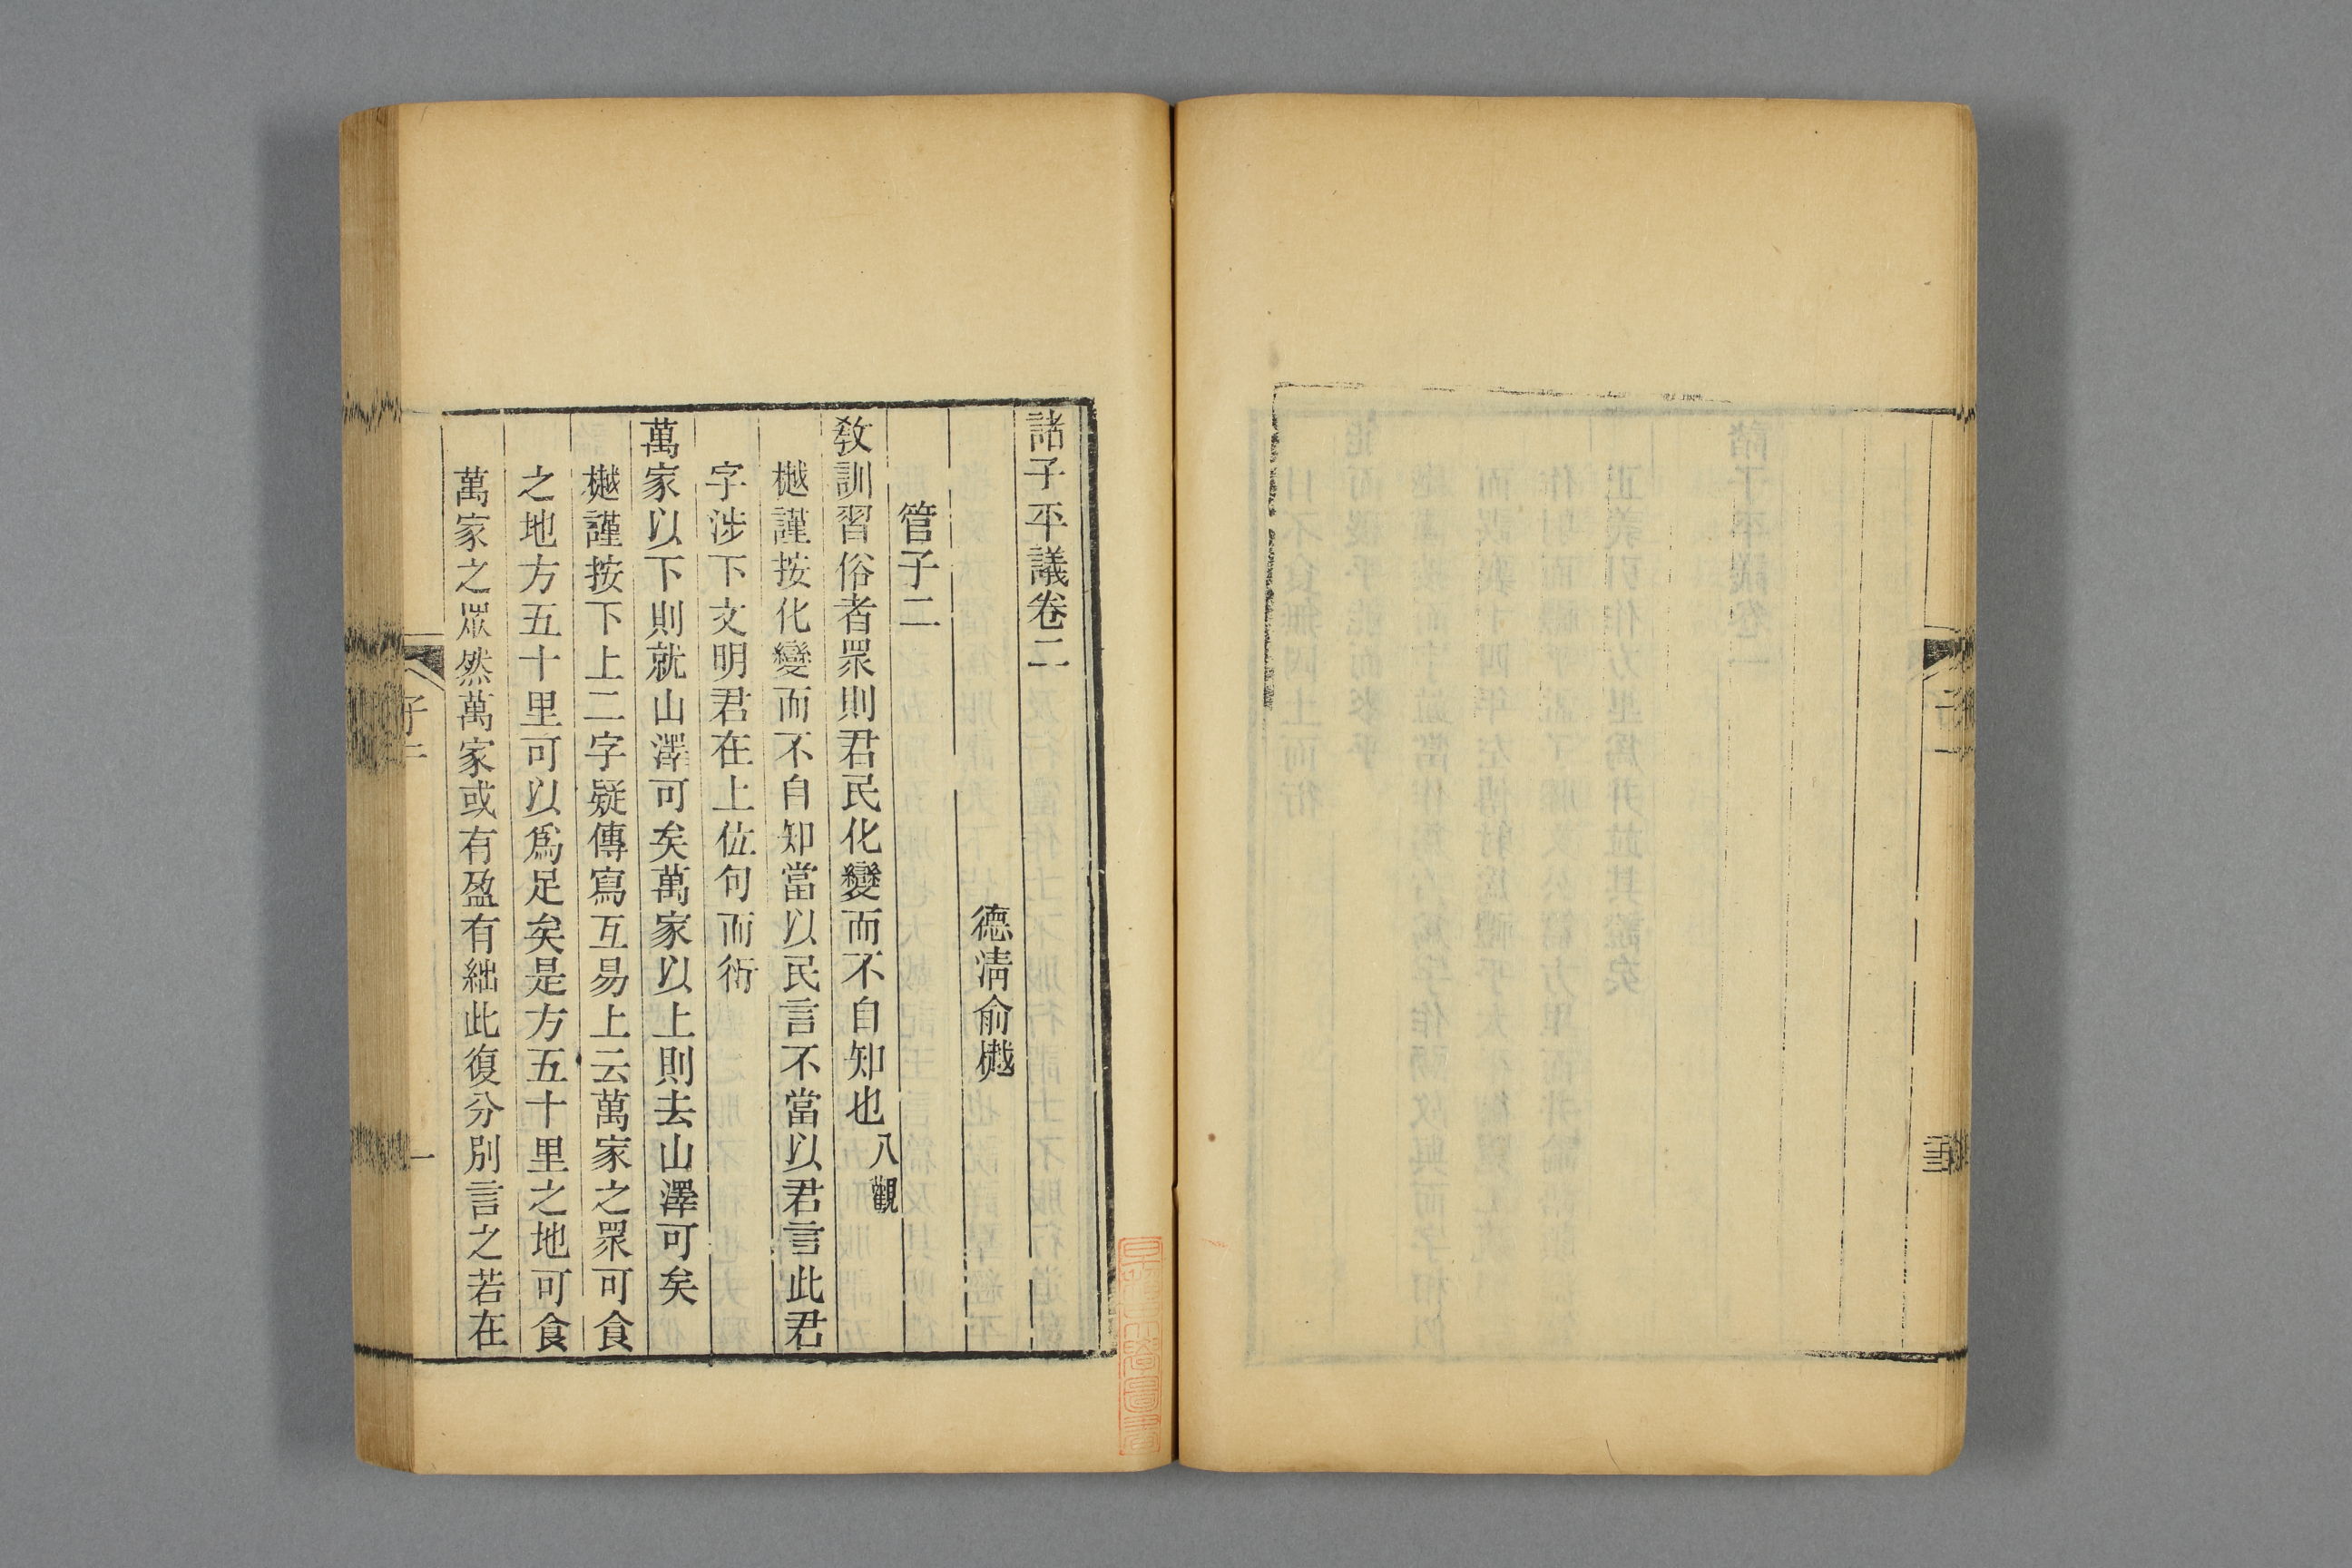 諸子平議卷二
德淸俞樾
管子二
敎訓習俗者眾則君民化變而不自知也 八觀
樾謹按化變而不自知當以民言不當以君言此君
字涉下文明君在上位句而衍
萬家以下則就山澤可矣萬家以上則去山澤可矣
樾謹按下上二字疑傳寫互易上云萬家之眾可食
之地方五十里可以爲足矣是方五十里之地可食
萬家之眾然萬家或有盈有絀此復分別言之若在
子二
一